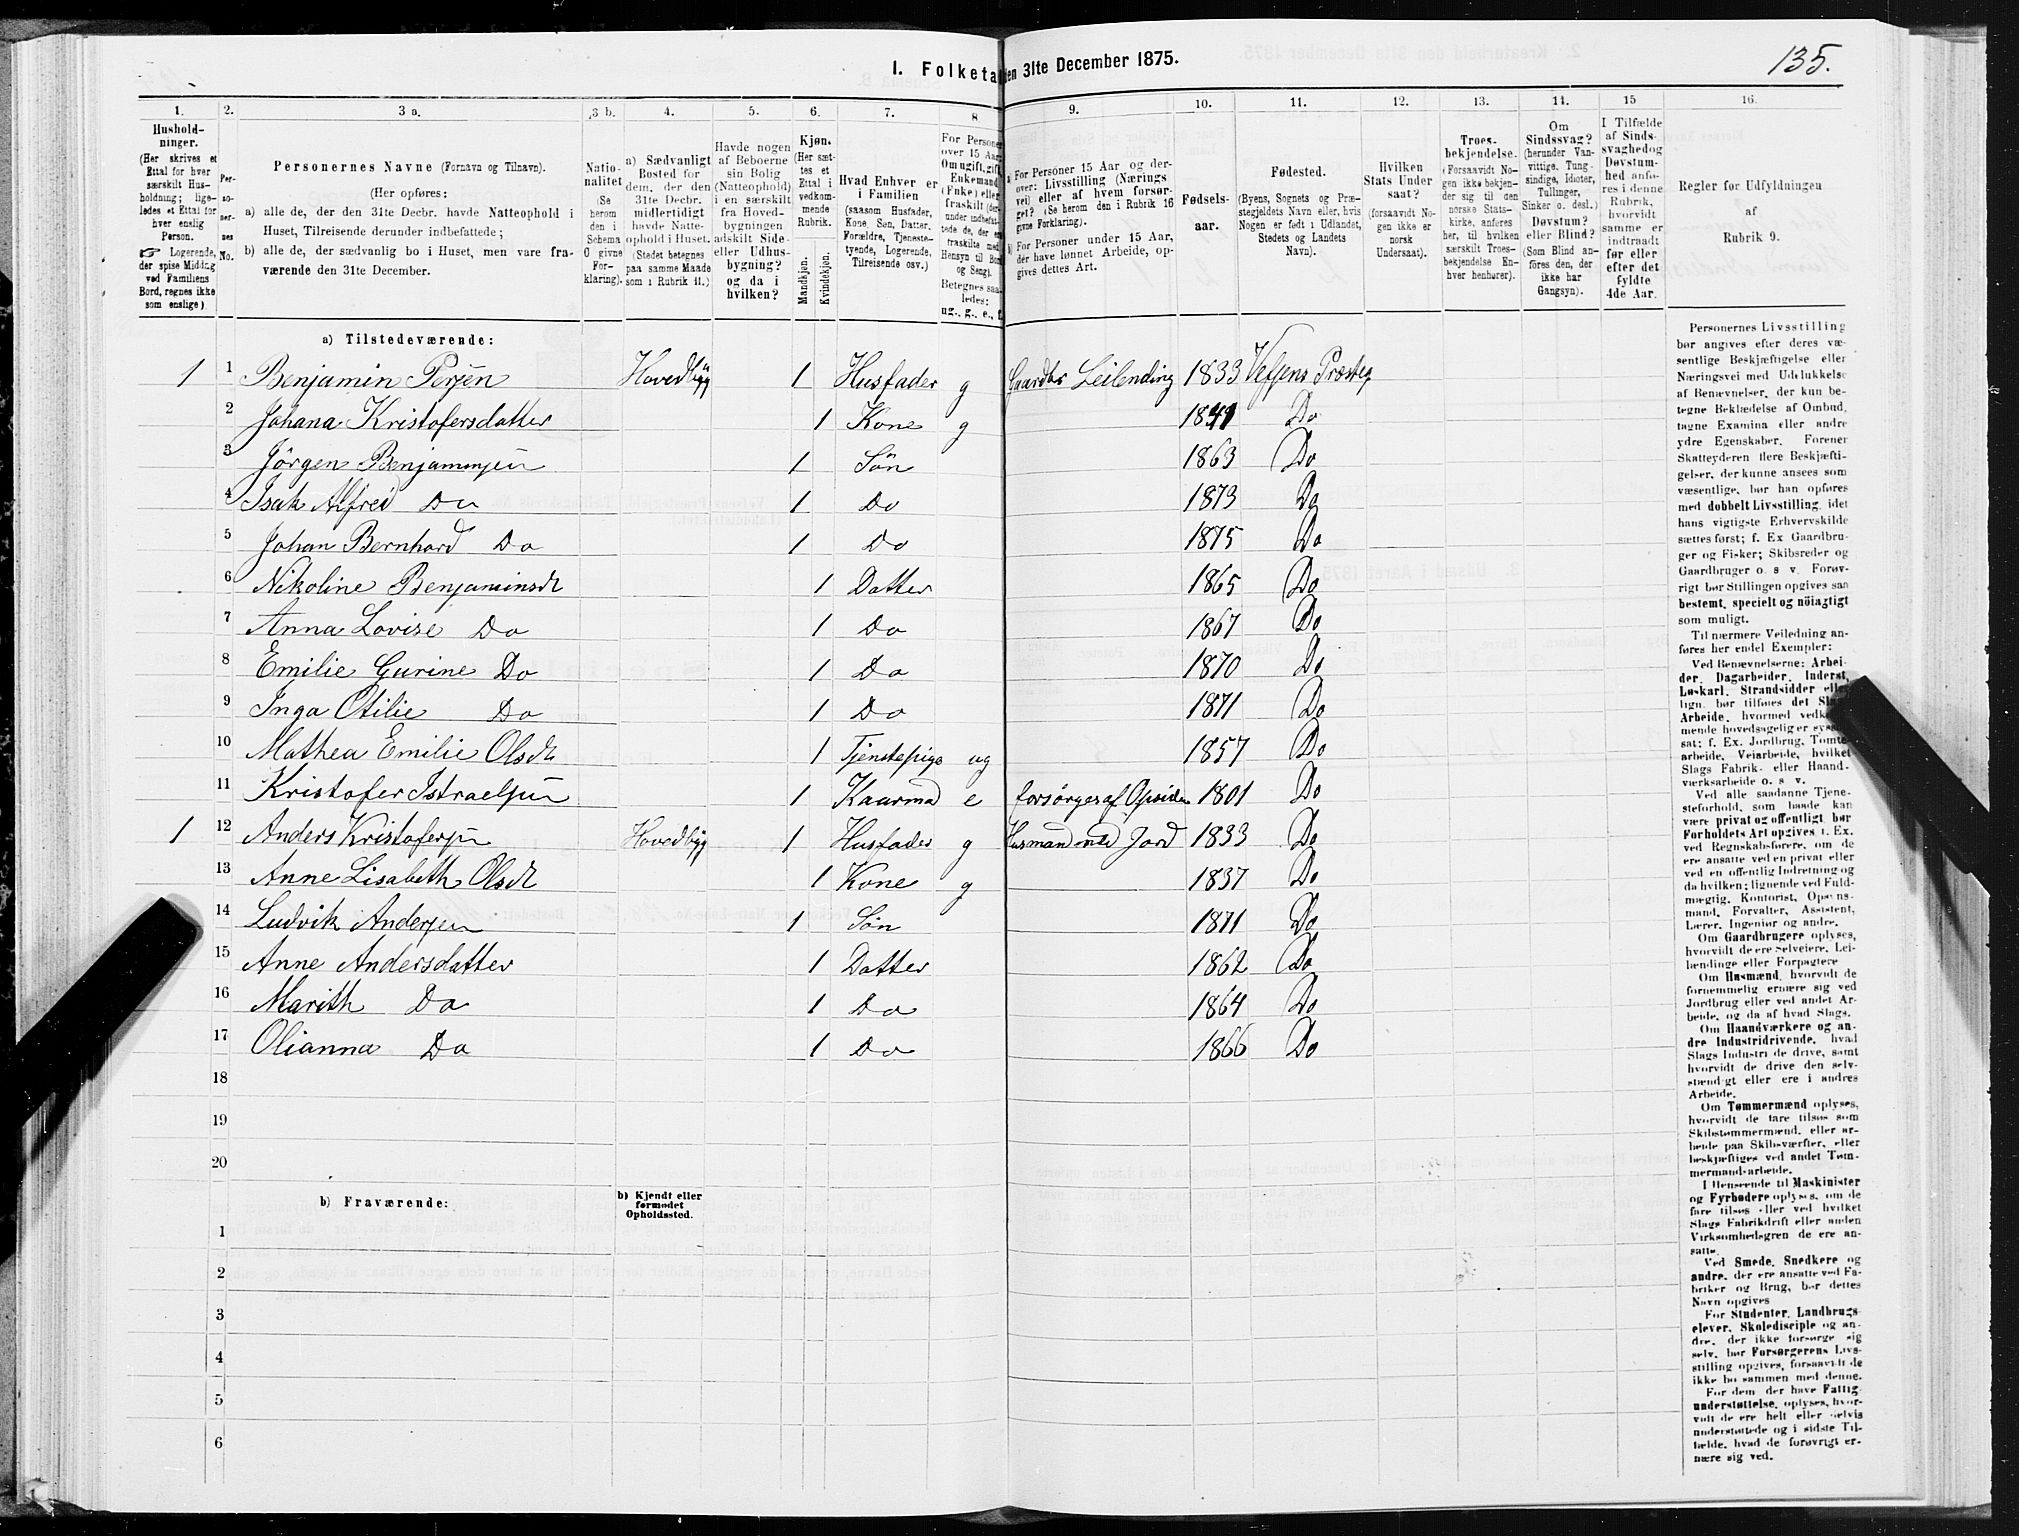 135.
I. Folketa en 31te December 1875.
1. 2. 3 a. 3 b. 4. 5. 6. 7. 8 9. 10. 11. 12. 13. 14. 15 16.
Hushold-
ninger.
(Her skrives et
Ettal for hver
særskilt Hus-
holdning; lige-
ledes et Ettal for
hver enslig
Person.
☞ Logerende,
der spise Middag
ved Familiens
Bord, regnes ikke
som enslige).
Per-
so-
ner-
nes
No.
Personernes Navne (Fornavn og Tilnavn).
(Her opføres:
a) alle de, der den 31te Decbr. havde Natteophold i
Huset, Tilreisende derunder indbefattede;
b) alle de, der sædvanlig bo i Huset, men vare fra-
værende den 31te December.
Natio-
nalitet
(Se
herom
den i
Schema
O givne
For-
klaring).
a) Sædvanligt
Bosted for
dem, der den
31te Decbr.
midlertidigt
havde Natte-
ophold i Huset.
(Stedet betegnes
paa samme Maade
som i Rubrik 11.)
Havde nogen
af Beboerne
sin Bolig
(Natteophold)
i en særskilt
fra Hoved-
bygningen
adskilt Side-
eller Udhus-
bygning?
og da i
hvilken?
Kjøn.
(Her sæt-
tes et
Ettal i
vedkom-
mende
Rubrik.
Mandkjøn.
Kvindekjøn.
Hvad Enhver er
i Familien
(saasom Husfader,
Kone, Søn, Datter,
Forældre, Tjeneste-
tyende, Logerende,
Tilreisende osv.)
For Persone
over 15 Aar
Om ugift, gift,
Enkemand
(Enke) eller
fraskilt (der-
under indbefat-
tede de, der ere
fraskilte med
Hensyn til Bord
og Seng).
Betegnes saa-
ledes:
ug., g., e., f.
a) For Personer 15 Aar og der-
over: Livsstilling (Nærings
vei) eller af hvem forsør-
get? (Se herom den i Rubrik 16
givne Forklaring).
b) For Personer under 15 Aar,
der have lønnet Arbeide, op-
gives dettes Art.
Fødsels-
aar.
Fødested.
(Byens, Sognets og Præ-
stegjeldets Navn eller, hvis
Nogen er født i Udlandet,
Stedets og Landets
Navn).
Hvilken
Stats Under
saat?
(forsaavidt No-
gen ikke er
norsk
Undersaat).
Troes-
bekjendelse.
(Forsaavidt No-
gen ikke bekjen-
der sig til den
norske Stats-
kirke, anføres
her, til hvilken
særskilt Troes-
bekjendelse En-
hver henhører).
Om
Sindssvag?
(herunder Van-
vittige, Tung-
sindige, Idioter,
Tullinger,
Sinker o. desl.)
Døvstum?
eller Blind?
(Som Blind an-
føres den, der
ikke har
Gangsyn).
I Tilfælde
af Sinds-
svaghed og
Døvstum-
hed anfø-
res i denne
Rubrik,
hvorvidt
samme er
indtraadt
før eller
efter det
fyldte
4de Aar.
Regler for Udfyldningen
af
Rubrik 9.
a) Tilstedeværende:
1 1 Benjamin Persen Hovedbyg 1 Husfader g Gaardbr Leilending 1833 Vefsens Præsteg
2 Johana Kristofersdatter 1 Kone g 1841 Do
3 Jörgen Benjaminsen 1 Sön 1863 Do
4 Isak Alfred Do 1 Do 1873 Do
5 Johan Bernhard Do 1 Do 1875 Do
6 Nikoline Benjaminsdt 1 Datter 1865 Do
7 Anna Lovise Do 1 Do 1867 Do
8 Emilie Gurine Do 1 Do 1870 Do
9 Inga Otilie Do 1 Do 1871 Do
10 Mathea Emilie Olsdt 1 Tjenstepige ug 1857 Do
11 Kristofer Istraelsen 1 Kaarmd e forsörges af Opsider 1801 Do
1 12 Anders Kristofersen Hovedbyg 1 Husfader g Husmand med Jord 1833 Do
13 Anne Lisabeth Olsdt 1 Kone g 1837 Do
14 Ludvik Andersen 1 Sön 1871 Do
15 Anne Andersdatter 1 Datter 1862 Do
16 Marith Do 1 Do 1864 Do
17 Olianna Do 1 Do 1866 Do
18
19
20
b) Fraværende:
b) Kjendt eller
formodet
Opholdssted.
1
2
3
4
5
6
Personernes Livsstilling
bør angives efter deres væ-
sentlige Beskjæftigelse eller
Næringsvei med Udelukkelse
af Benævnelser, der kun be-
tegne Beklædelse af Ombud,
tagne Examina eller andre
ydre Egenskaber. Forener
Skatteyderen flere Beskjæfti-
gelser, der kunne ansees som
væsentlige, bør han opføres
med dobbelt Livsstilling, idet
hans vigtigste Erhvervskilde
sættes først; f. Ex Gaardbru-
ger og Fisker; Skibsreder og
Gaardbruger o. s v. Forøv-
rigt bør Stillingen opgives saa
bestemt, specielt og nøiagtigt
som muligt.
Til nærmere Veiledning an-
føres her endel Exempler:
Ved Benævnelserne: Arbei-
der, Dagarbeider, Inderst,
Løskarl, Strandsidder elle
lign. bør tilføies det Sla
Arbeide, hvormed vedk
mende hovedsagelig er syss
sat; f. Ex. Jordbrug, Tømte
arbeide, Veiarbeide, hvilket
Slags Fabrik- eller Haand-
værksarbeide o. s. v.
Ved alle saadanne Tjene-
steforhold, som baade kan
være privat og offentligt, bør
Forholdets Art opgives, f. Ex.
ved Regnskabsførere, om de
ere ansatte ved en privat eller
ved en offentlig Indretning og
da hvilken; lignende ved Fuld-
mægtig, Kontorist, Opsyns-
mand, Forvalter, Assistent,
Lærer, Ingeniør og andre.
Om Gaardbrugere oplyses,
hvorvidt de ere Selveiere, Lei-
lændinge eller Forpagtere
Om Husmænd, hvorvidt de
fornemmelig ernære sig ved
Jordbrug eller ved andet Ar-
beide, og da af hvad Slags.
Om Haandværkere og an-
dre Industridrivende, hvad
Slags Industri de drive, samt
hvorvidt de drive den selv-
stændigt eller ere i andres
Arbeide.
Om Tømmermænd oplyses,
hvorvidt de fare tilsøs som
Skibstømmermænd, eller ar-
beide paa Skibsværfter, eller
beskjæftiges ved andet Tøm-
mermandsarbeide.
I Henseende til Maskinister
og Fyrbødere oplyses, om de
fare tilsøs eller ved hvilket
Slags Fabrikdrift eller anden
Virksomhedsgren de ere an-
satte.
Ved Smede, Snedkere og
andre, der ere ansatte ved Fa-
briker og Brug, bør dettes
Navn opgives
For Studenter, Landbrugs-
elever, Skoledisciple og an-
dre, der ikke forsørge sig
selv, bør Forsørgerens Livs-
stilling opgives, forsaavidt de
ikke bo sammen med denne.
For dem, der have Fattig-
understøttelse, oplyses, hvor-
vidt de ere helt eller delvis
understøttede og i sidste Til-
fælde, hvad de forøvrigt er-
nære sig ved.